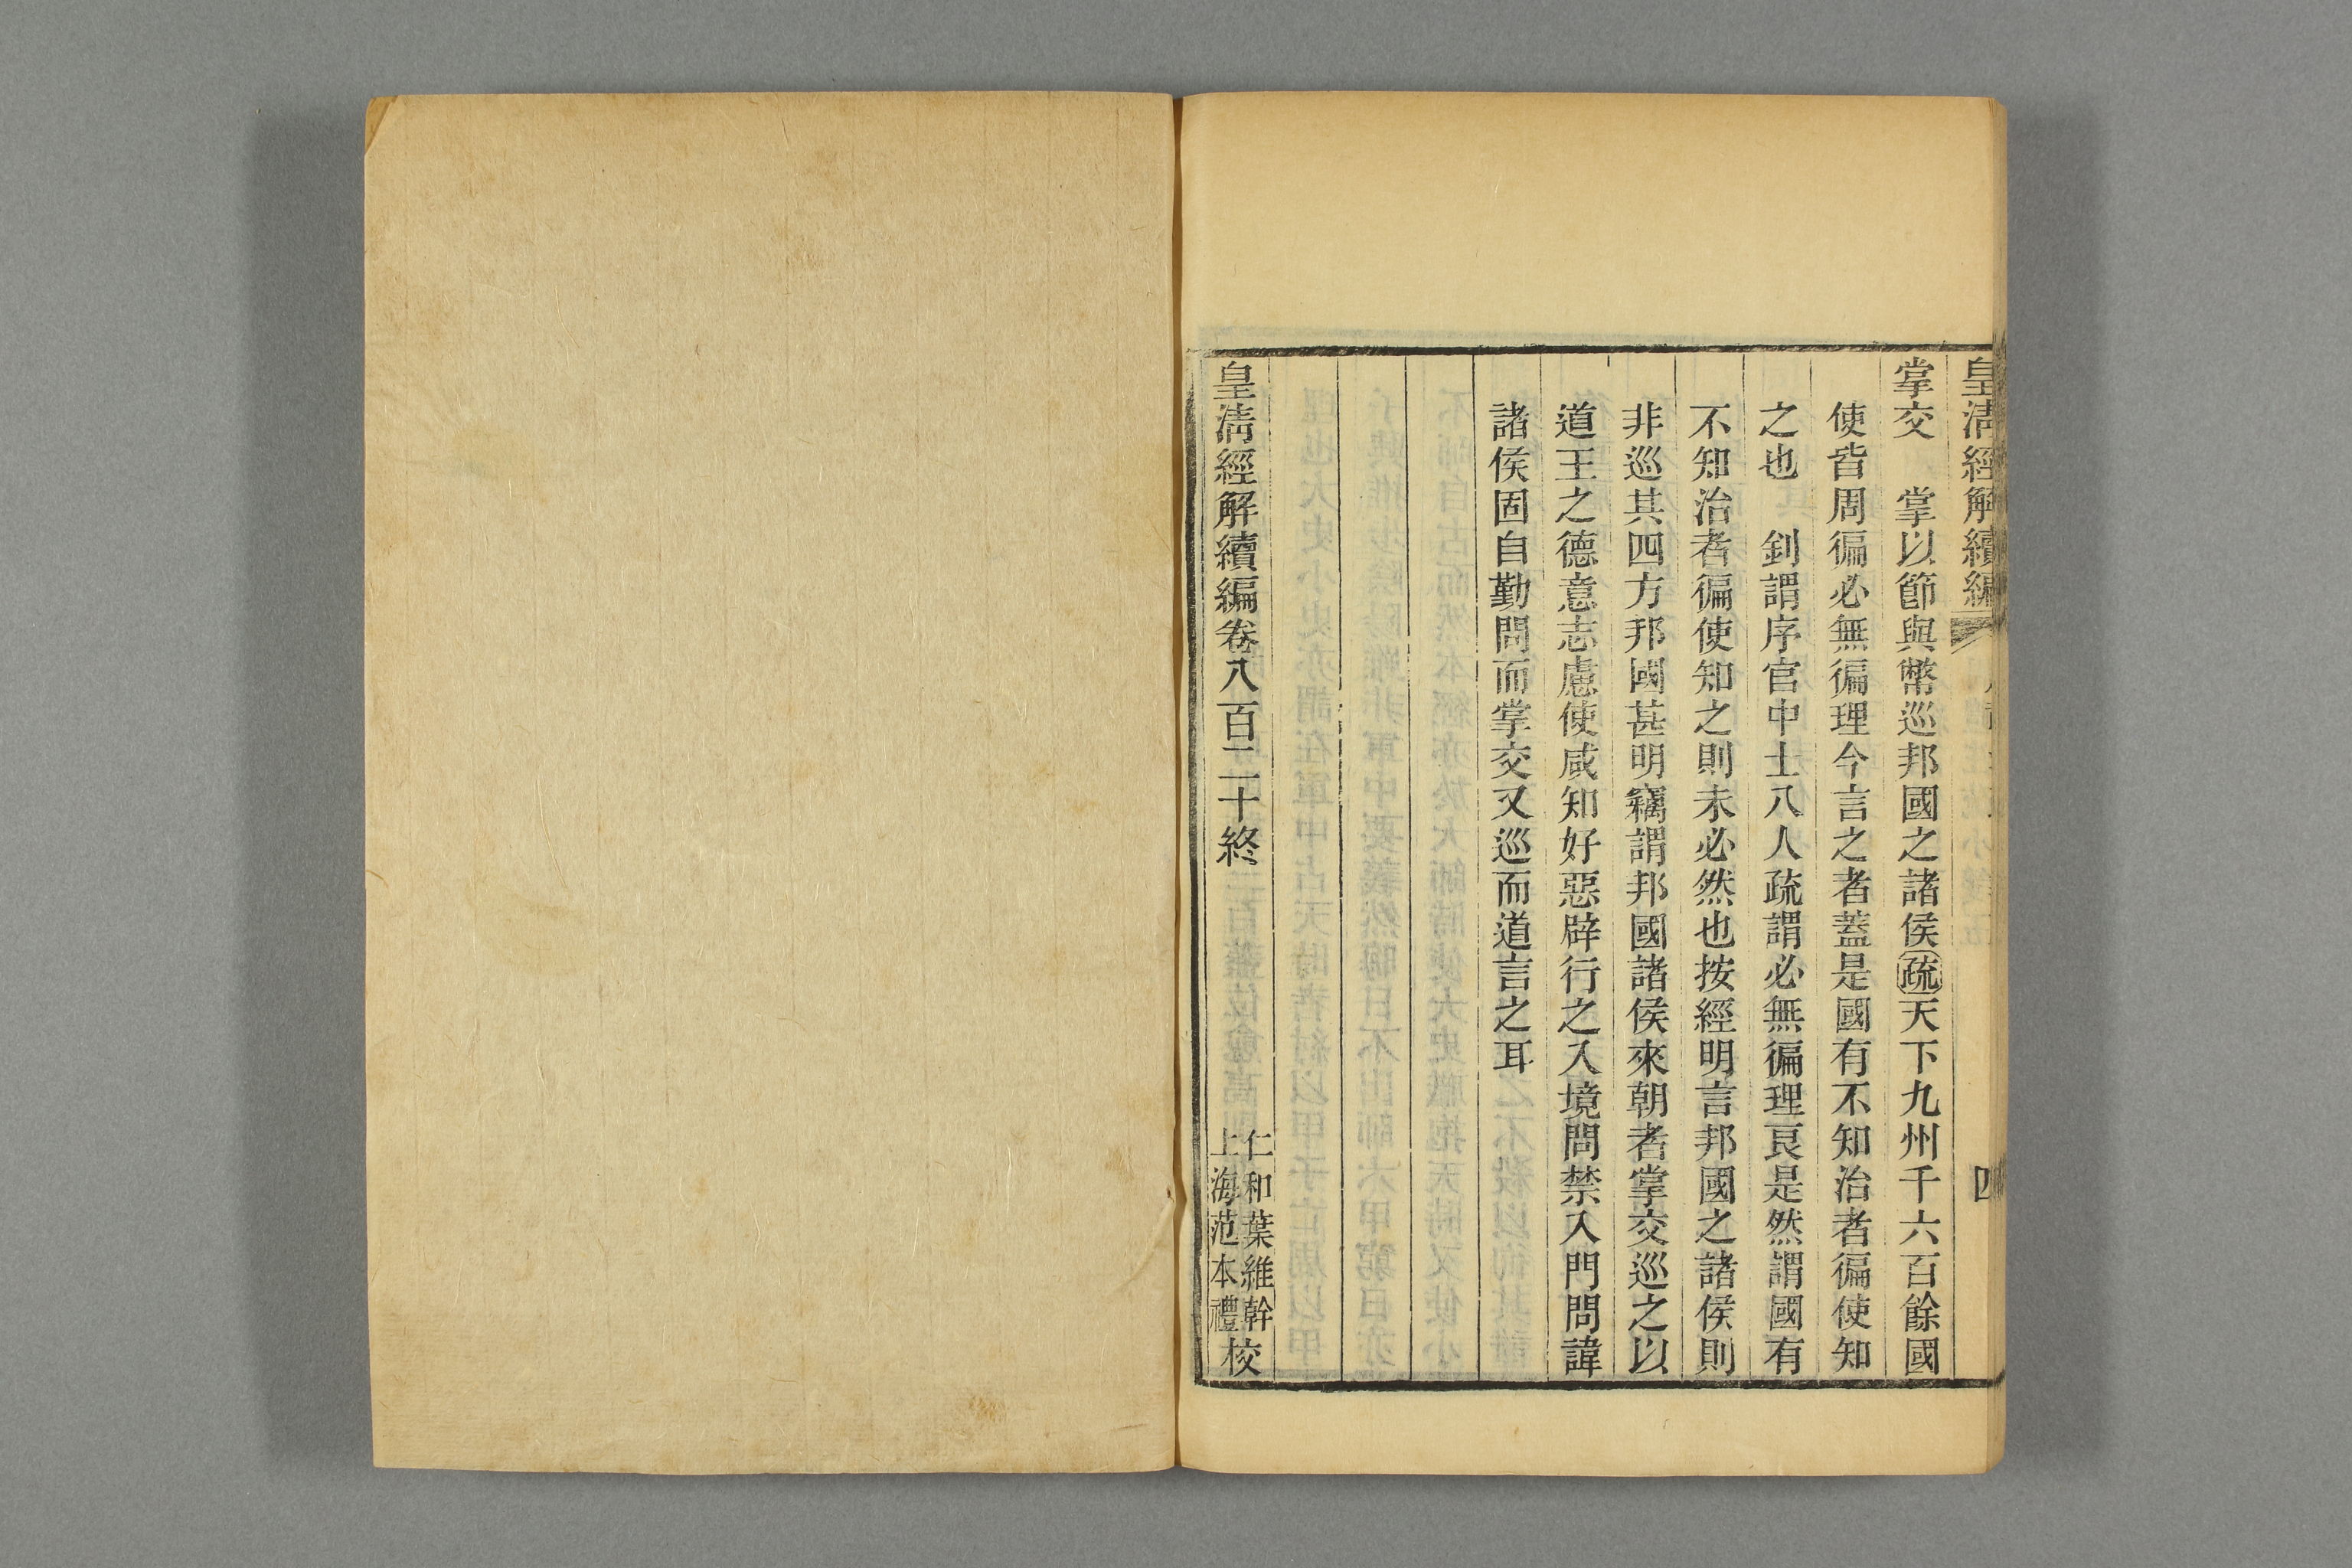 皇淸經解續編
四
掌交　掌以節與幣巡邦國之諸侯疏天下九州千六百餘國
使皆周徧必無徧理今言之者蓋是國有不知治者徧使知
之也　釗謂序官中士八人疏謂必無徧理良是然謂國有
不知治者徧使知之則未必然也按經明言邦國之諸侯則
非巡其四方邦國甚明竊謂邦國諸侯來朝者掌交巡之以
道王之德意志慮使咸知好惡辟行之入境問禁入門問諱
諸侯固自勤問而掌交又巡而道言之耳
皇淸經解續編卷八百二十終
仁和葉維幹
上海范本禮
校